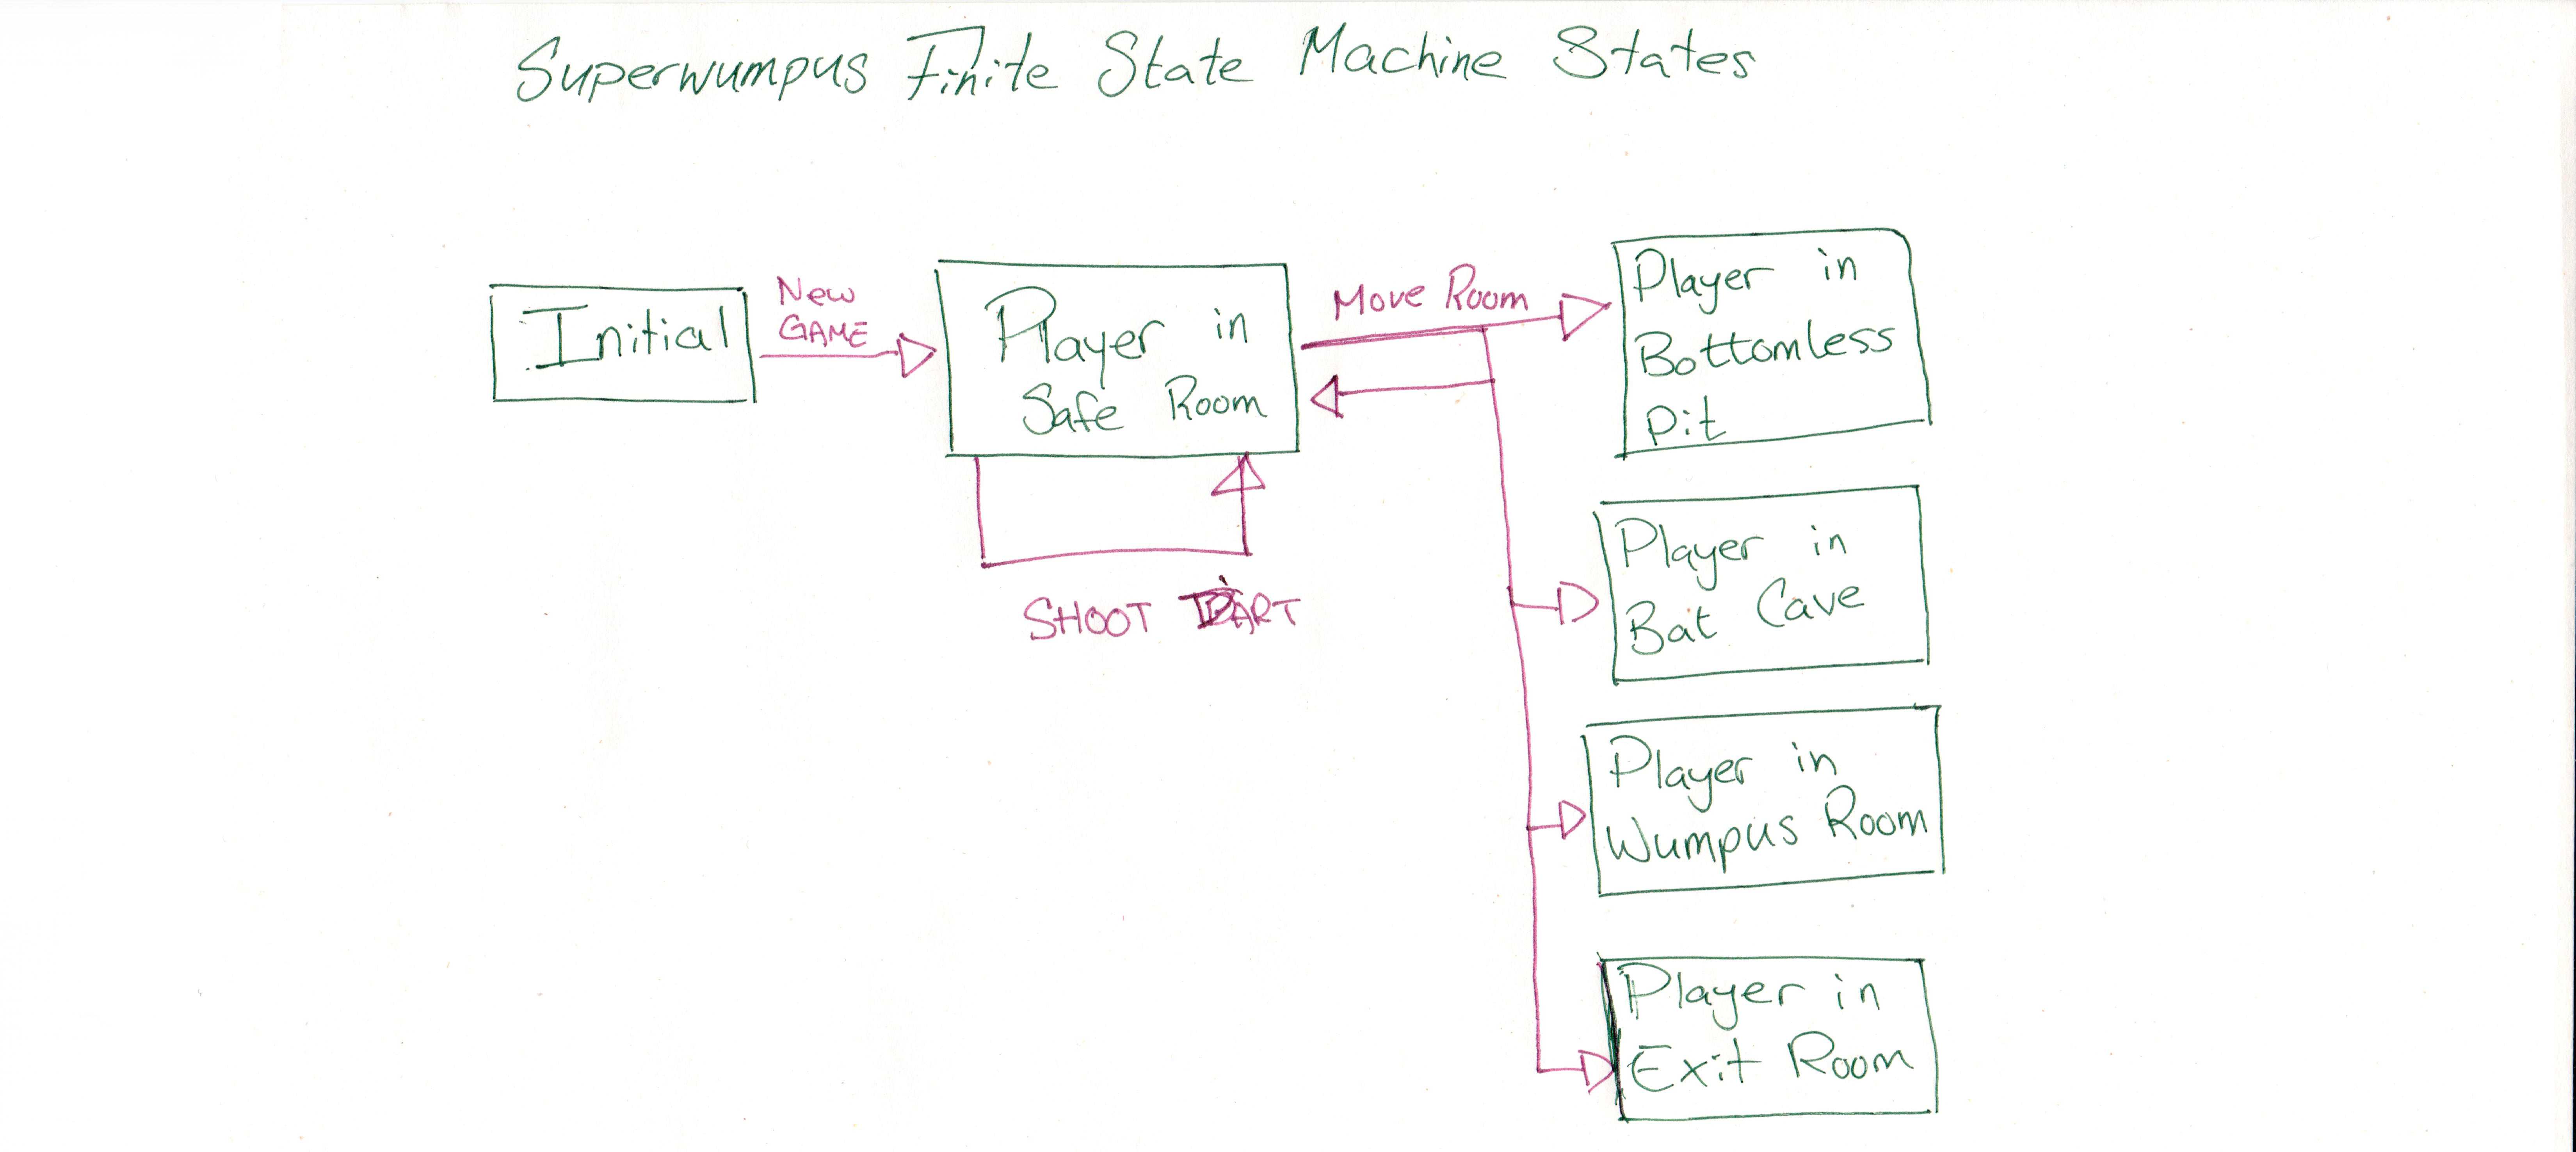 Superwumpus Finite State Machine States
Initial
New
GAME
Player in
Safe Room
SHOOT DART
Move Room
Player in
Bottomless
Pit
Player in
Bat Cave
Player in
Wumpus Room
Player in
Exit Room